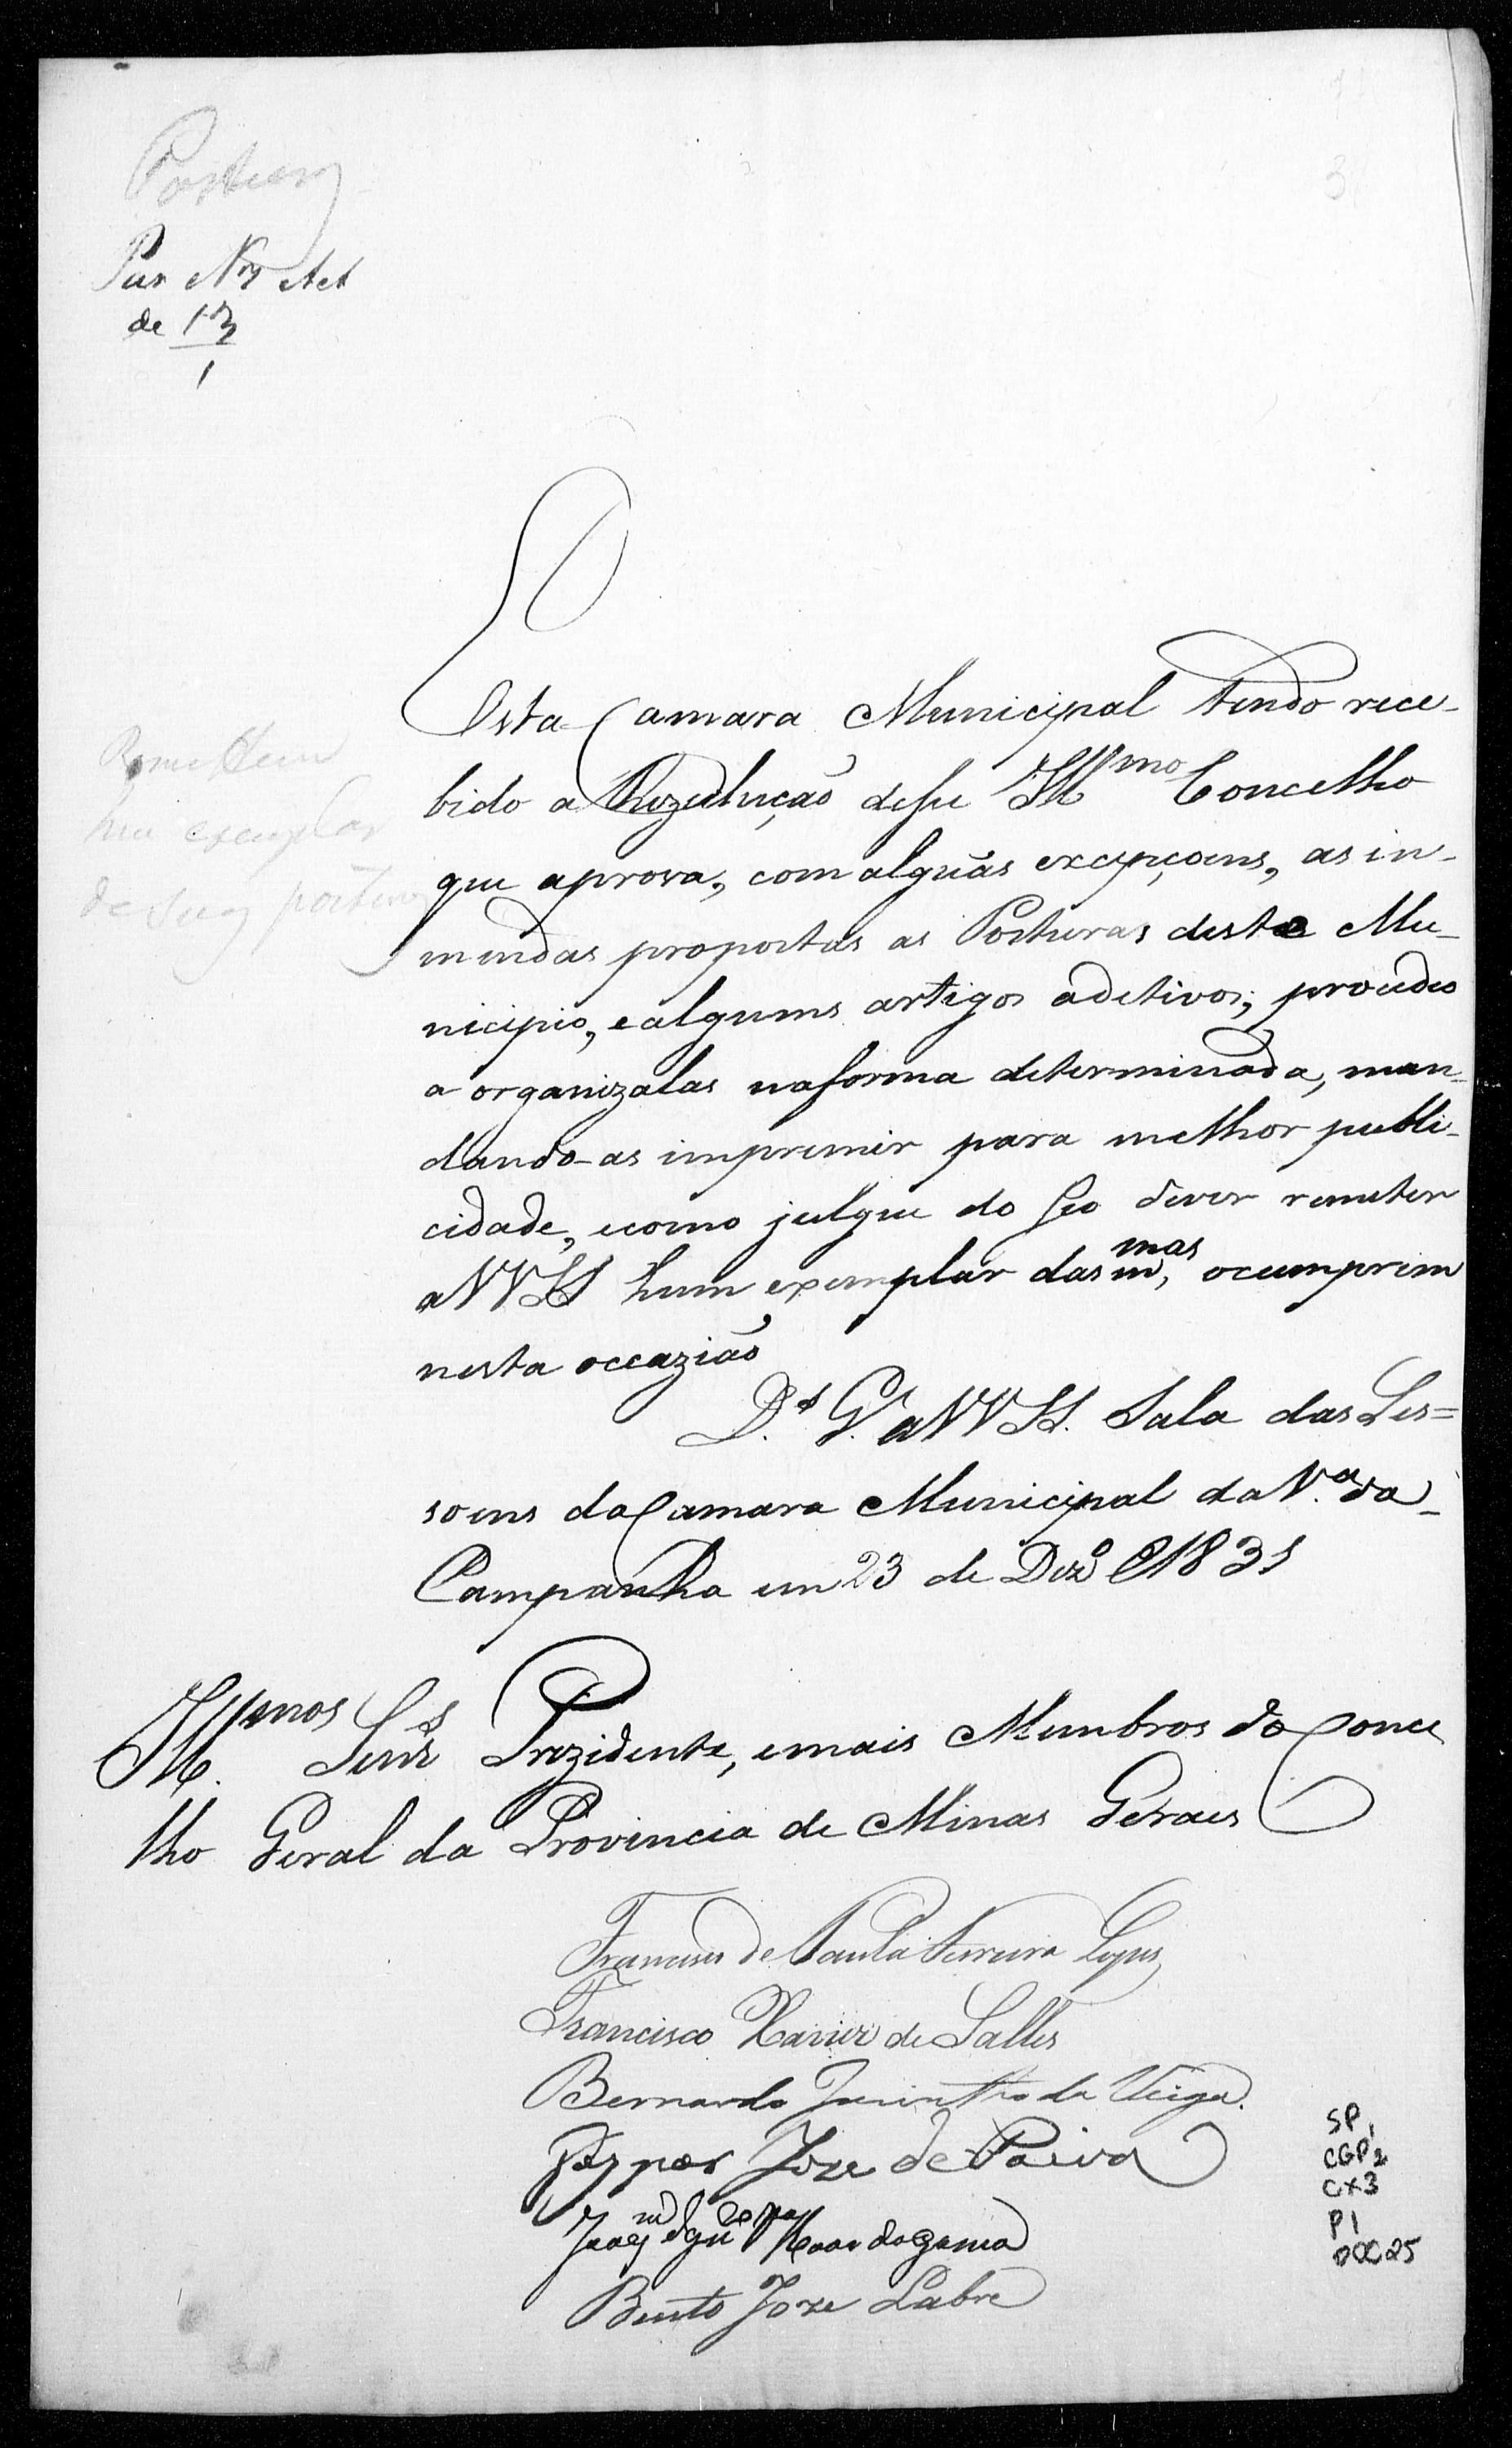 Posturas
de 13
1
Esta Camara Municipal tendo rece-
bido a Rezulução desse Ill.mo Concelho
que aprova, com alguãs excepçoens, as in-
mendas propostas as Posturas deste Mu-
nicipio, e algums artigos adetivos; procedeo
a organizalas na forma determinada, man-
dando-as impremir para melhor publi-
cidade, e como julgue do seo dever remeter
a VV SS hum exemplar das m.mas, o cumprim
nesta occazião
D.s G. a VV SS. Sala das Ses=
soens da Camara Municipal da V.a da
Campanha em 23 de Dezo 1831
Ill.mos Senrs Prezidente, e mais Membros do Conce
lho Geral da Provincia de Minas Geraes
Remettem
hu exemplar
de suas posturas
Francisco de Paula Ferreira Lopes
Francisco Xavier de Salles
Bernardo Jacintho da Veiga.
Gaspar Joze de Paiva
Bento Joze Labre
SP
CGP1 2
CX3
P1
DOC25